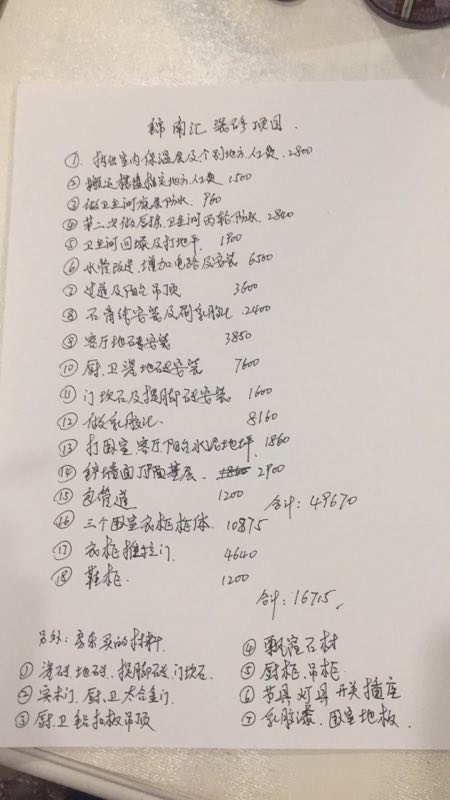 锦南汇装修项目.
①. 拆供室内保温层及个别地方.人工费.2800
② 搬运 指定地方.人工费 1500
③ 做卫生间底层防水. 960
④ 第二次做厨房.卫生间两轮防水. 2840
⑤ 卫生间回填及打地平. 1900
⑥ 水管改造.增加电路及安装 6500
⑦ 过道及阳台吊顶 3600
⑧ 石膏线安装及刷乳胶漆.2400
⑨ 客厅地砖安装 3850
⑩ 厨.卫瓷地砖安装 7600
⑪ 门坎石及踢脚砖安装 1600
⑫ 做乳胶漆. 8160
⑬ 打卧室.客厅.阳台水泥地坪. 1860
⑭ 铲墙面顶面基层. 2900
⑮ 包管道 1200
合计:49670
⑯ 三个卧室衣柜柜体. 10875
⑰ 衣柜推拉门. 4640
⑱ 鞋柜. 1200
合计:16715.
另外:房东买的材料.
① 瓷砖.地砖.踢脚砖.门坎石.
② 实木门.厨.卫太合金门.
③ 厨.卫铝扣板吊顶
④ 飘窗石材
⑤ 厨柜.吊柜.
⑥ 节具灯具开关插座
⑦ 乳胶漆.卧室地板.